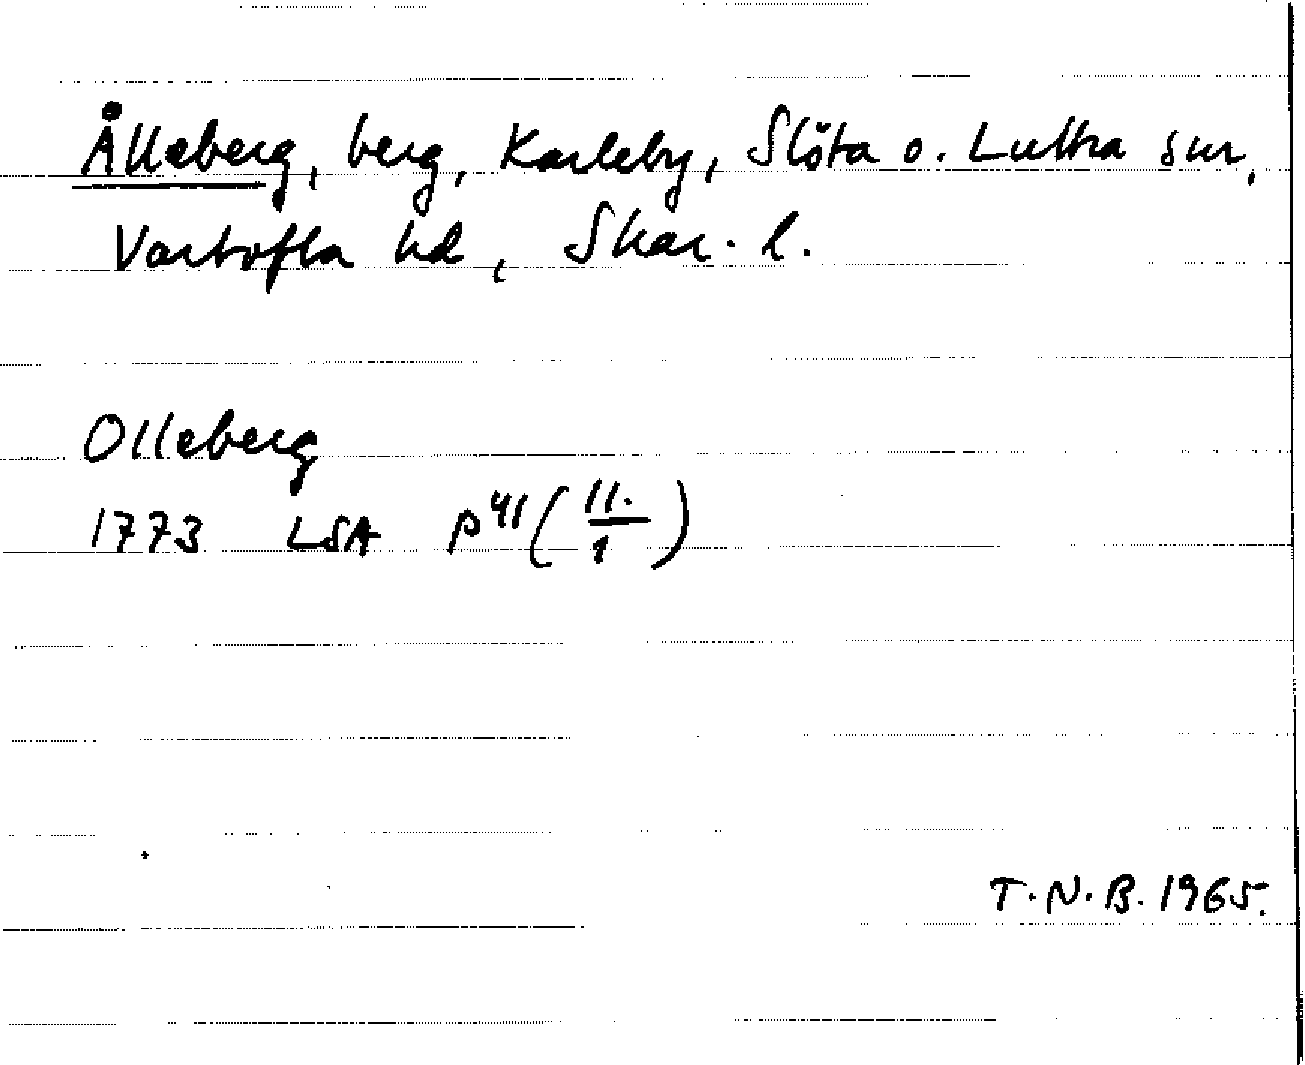 Ålleberg, berg, Karleby, Slöta o. Luttra snr,
Vartofta hd, Skar. l.
Olleberg
1773 LSA P41 (11./1)
T.N.B. 1965.